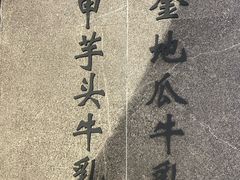 金地瓜牛乳
甲芋头牛乳